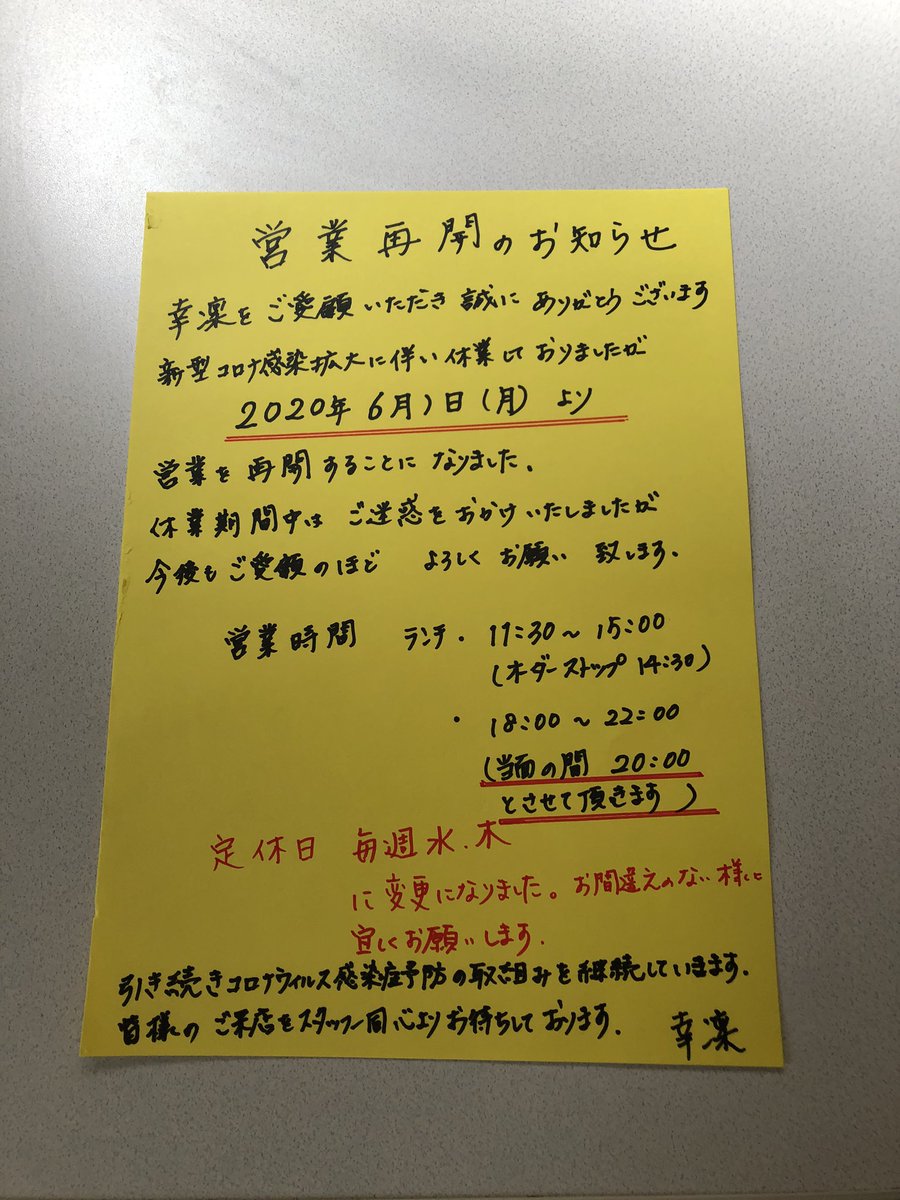 営業再開のお知らせ
幸凛をご愛顧いただき誠にありがとうございます
新型コロナ感染拡大に伴い休業しておりましたが
2020年6月1日(月)より
営業を再開することになりました.
休業期間中はご迷惑をおかけいたしましたが
今後もご愛顧のほど よろしくお願い致します.
営業時間 ランチ・11:30~15:00
(オーダーストップ 14:30)
・18:00~22:00
(当面の間 20:00
とさせて頂きます)
定休日 毎週水.木
に変更になりました。お間違えのない様に
宜しくお願いします.
引き続きコロナウイルス感染症予防の取組みを継続していきます.
皆様のご来店をスタッフ一同心よりお待ちしております.
幸凛